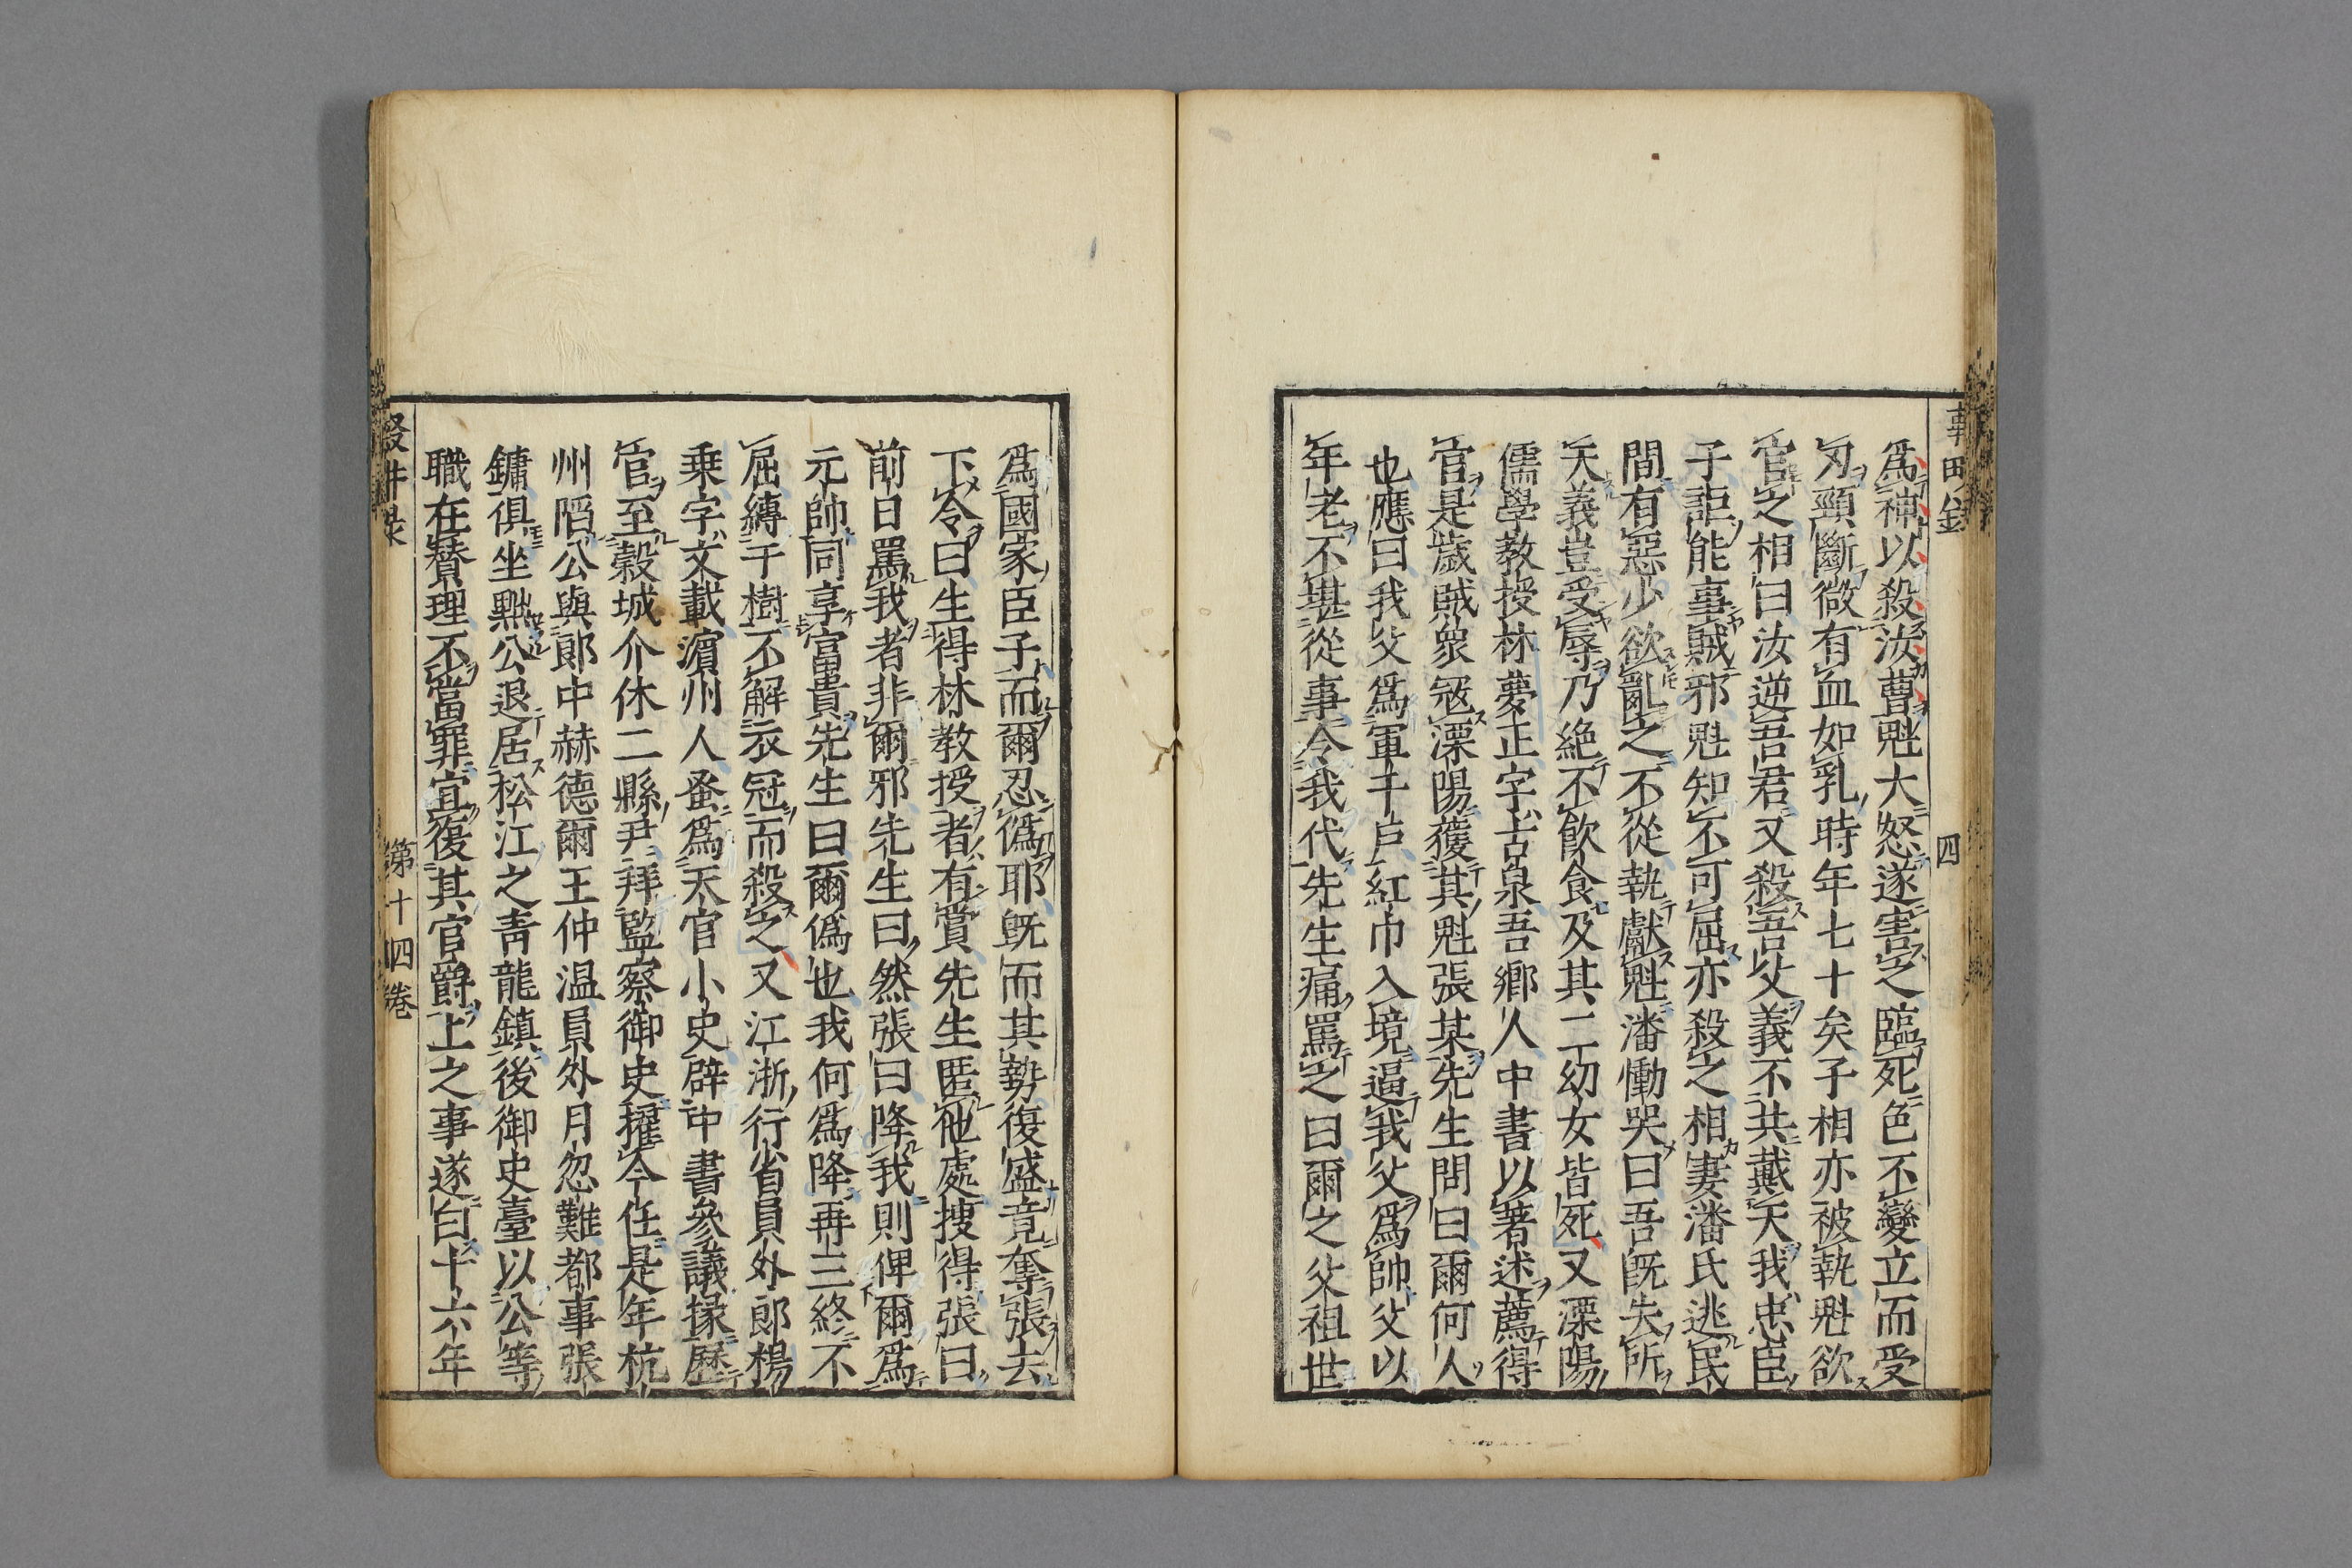 為神以殺汝曹魁大怒遂害之臨死色不變立而受
刃頸斷微有血如乳時年七十矣子相亦被執魁欲
官之相曰汝逆吾君又殺吾父義不共戴天我忠臣
子詎能事賊邪魁知不可屈亦殺之相妻潘氏逃民
間有惡少欲亂之不從執獻魁潘慟哭曰吾既失所
天義豈受辱乃絶不飲食及其二幼女皆死又溧陽
儒學教授林夢正字古泉吾鄉人中書以著述薦得
官是歲賊衆寇溧陽獲其魁張某先生問曰爾何人
也應曰我父為軍千戸紅巾入境逼我父為帥父以
年老不堪從事令我代先生痛罵之曰爾之父祖世
四
為國家臣子而爾忍偽耶既而其勢復盛竟奪張去
下令曰生得林教授者有賞先生匿他處捜得張曰
前日罵我者非爾邪先生曰然張曰降我則俾爾為
元帥同享富貴先生曰爾偽也我何為降再三終不
屈縛于樹不解衣冠而殺之又江浙行省員外郎楊
乗字文載濵州人蚤為天官小史辟中書參議掾歷
官至穀城介休二縣尹拜監察御史擢今任是年杭
州陷公與郎中赫德爾王仲温員外月忽難都事張
鏞俱坐黜公退居松江之青龍鎮後御史臺以公等
職在賛理不當罪宜復其官爵上之事遂白十六年
第十四卷